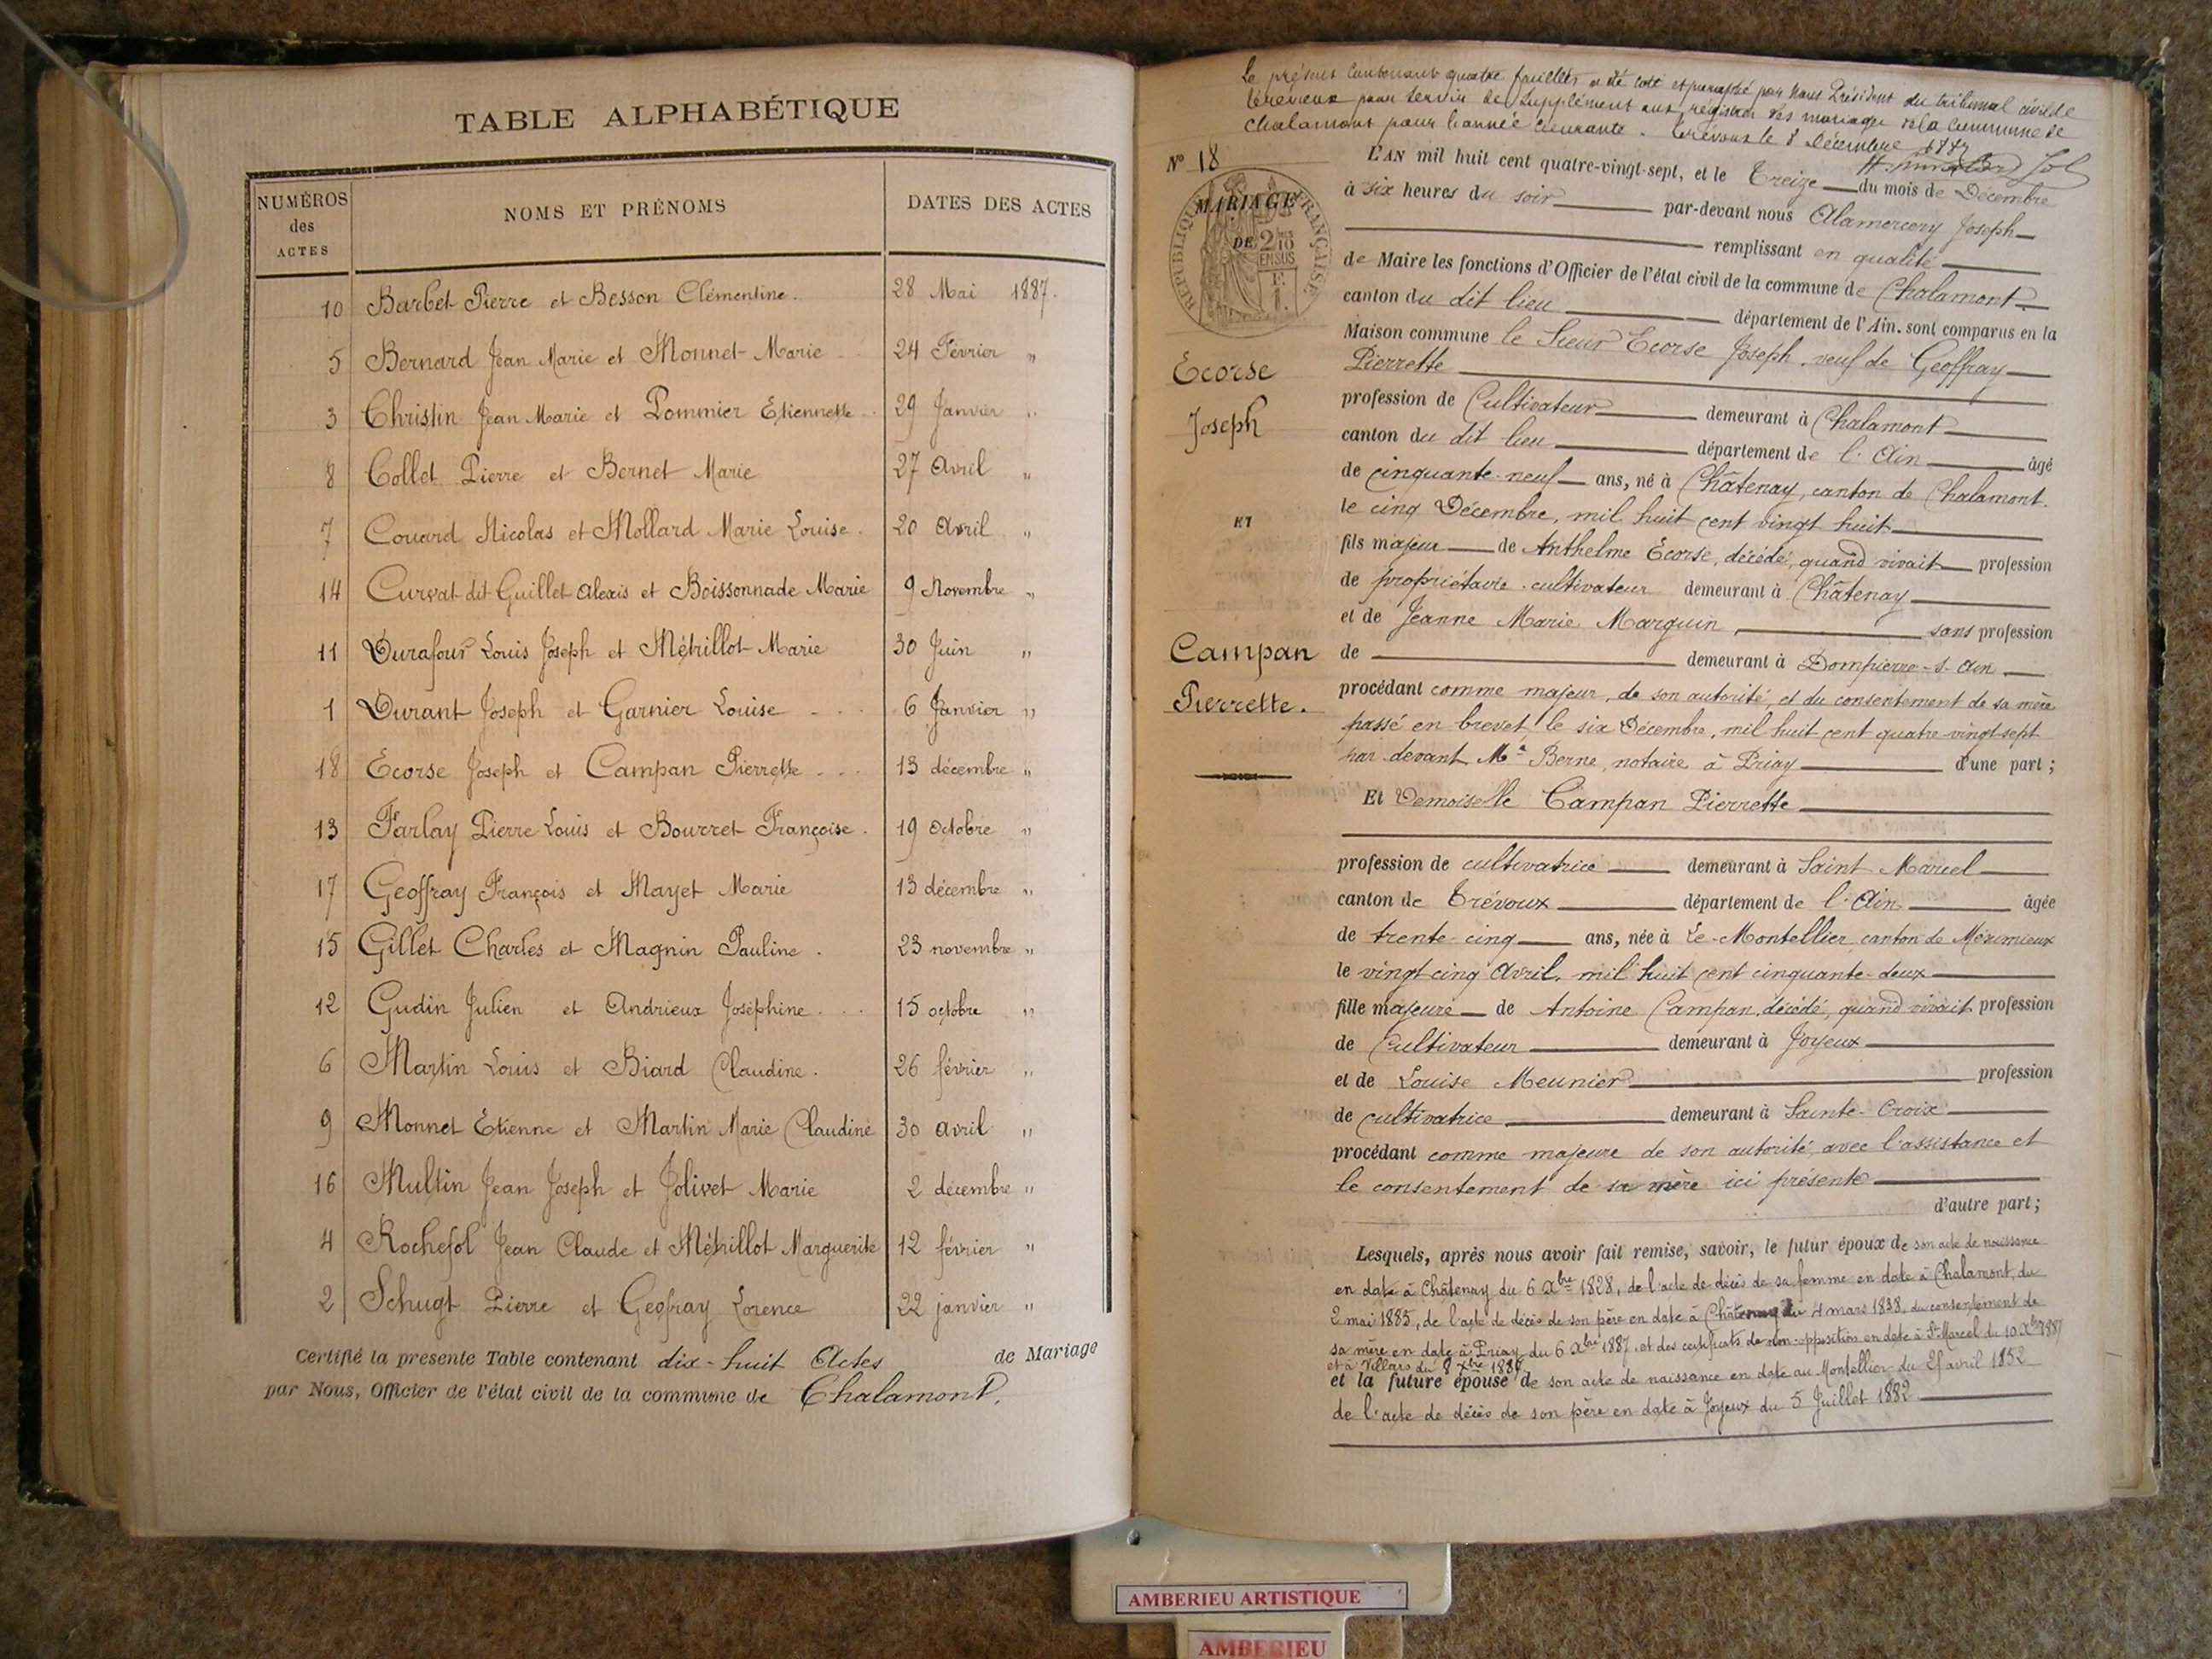 TABLE ALPHABÉTIQUE
NUMÉROS des ACTES
NOMS ET PRÉNOMS
DATES DES ACTES
10 Barbet Pierre et Besson Clémentine. 28 Mai 1887.
5 Bernard Jean Marie et Monnet Marie 24 Février "
3 Christin Jean Marie et Pommier Etiennette 29 Janvier "
8 Collet Pierre et Bernet Marie 27 Avril "
7 Couard Nicolas et Mollard Marie Louise. 20 Avril "
14 Curvat dit Guillet Alexis et Boissonnade Marie 9 Novembre "
11 Durafour Louis Joseph et Métrillot Marie 30 Juin "
1 Durant Joseph et Garnier Louise 6 Janvier "
18 Ecorse Joseph et Campan Pierrette 13 décembre "
13 Farlay Pierre Louis et Bourret Françoise. 19 Octobre "
17 Geoffray François et Mayet Marie 13 décembre "
15 Gillet Charles et Magnin Pauline. 23 novembre "
12 Gudin Julien et Andrieux Joséphine 15 octobre "
6 Martin Louis et Biard Claudine. 26 février "
9 Monnet Etienne et Martin Marie Claudine 30 avril "
16 Multin Jean Joseph et Jolivet Marie 2 décembre "
4 Rochefol Jean Claude et Métrillot Marguerite 12 février "
2 Schugt Pierre et Geofray Lorence 22 janvier "
Certifié la presente Table contenant dix-huit Actes de Mariage
par Nous, Officier de l'état civil de la commune de Chalamont.
Le présent contenant quatre feuilles a été coté et paraphé par Nous Président du tribunal civil de
Trévoux pour servir de supplément aux registres des mariages de la Commune de
Chalamont pour l'année courante. Trévoux le 8 Décembre 1887
N° 18
MARIAGE
RÉPUBLIQUE FRANÇAISE
DE 2/10 EN SUS
L'AN mil huit cent quatre-vingt-sept, et le Treize du mois de Décembre
à six heures du soir par-devant nous Alamercery Joseph
remplissant en qualité
de Maire les fonctions d'Officier de l'état civil de la commune de Chalamont
canton du dit lieu département de l'Ain. sont comparus en la
Maison commune le Sieur Ecorse Joseph, veuf de Geoffray
Pierrette
Ecorse
Joseph
ET
Campan
Pierrette.
profession de Cultivateur demeurant à Chalamont
canton du dit lieu département de l'Ain âgé
de cinquante-neuf ans, né à Châtenay, canton de Chalamont.
le cinq Décembre, mil huit cent vingt huit
fils majeur de Anthelme Ecorse, décédé, quand vivait profession
de propriétaire-cultivateur demeurant à Châtenay
et de Jeanne Marie Marguin, sans profession
de demeurant à Dompierre-s-Ain
procédant comme majeur, de son autorité, et du consentement de sa mère
passé en brevet le six Décembre, mil huit cent quatre-vingt-sept
par devant Me Berne, notaire à Priay d'une part;
Et Demoiselle Campan Pierrette
profession de cultivatrice demeurant à Saint Marcel
canton de Trévoux département de l'Ain âgée
de trente-cinq ans, née à Le Montellier canton de Méximieux
le vingt cinq Avril, mil huit cent cinquante-deux
fille majeure de Antoine Campan, décédé, quand vivait profession
de Cultivateur demeurant à Joyeux
et de Louise Meunier profession
de cultivatrice demeurant à Sainte-Croix
procédant comme majeure de son autorité, avec l'assistance et
le consentement de sa mère ici présente
d'autre part;
Lesquels, après nous avoir fait remise, savoir, le futur époux de son acte de naissance
en date à Châtenay du 6 Xbre 1828, de l'acte de décès de sa femme en date à Chalamont, du
2 mai 1885, de l'acte de décès de son père en date à Châtenay du 4 mars 1838, du consentement de
sa mère en date à Priay du 6 Xbre 1887, et des certificats de non-opposition en date à St Marcel du 10 Xbre 1887
et à Villars du 8 Xbre 1887
et la future épouse de son acte de naissance en date au Montellier du 25 avril 1852
de l'acte de décès de son père en date à Joyeux du 5 Juillet 1882
AMBERIEU ARTISTIQUE
AMBERIEU